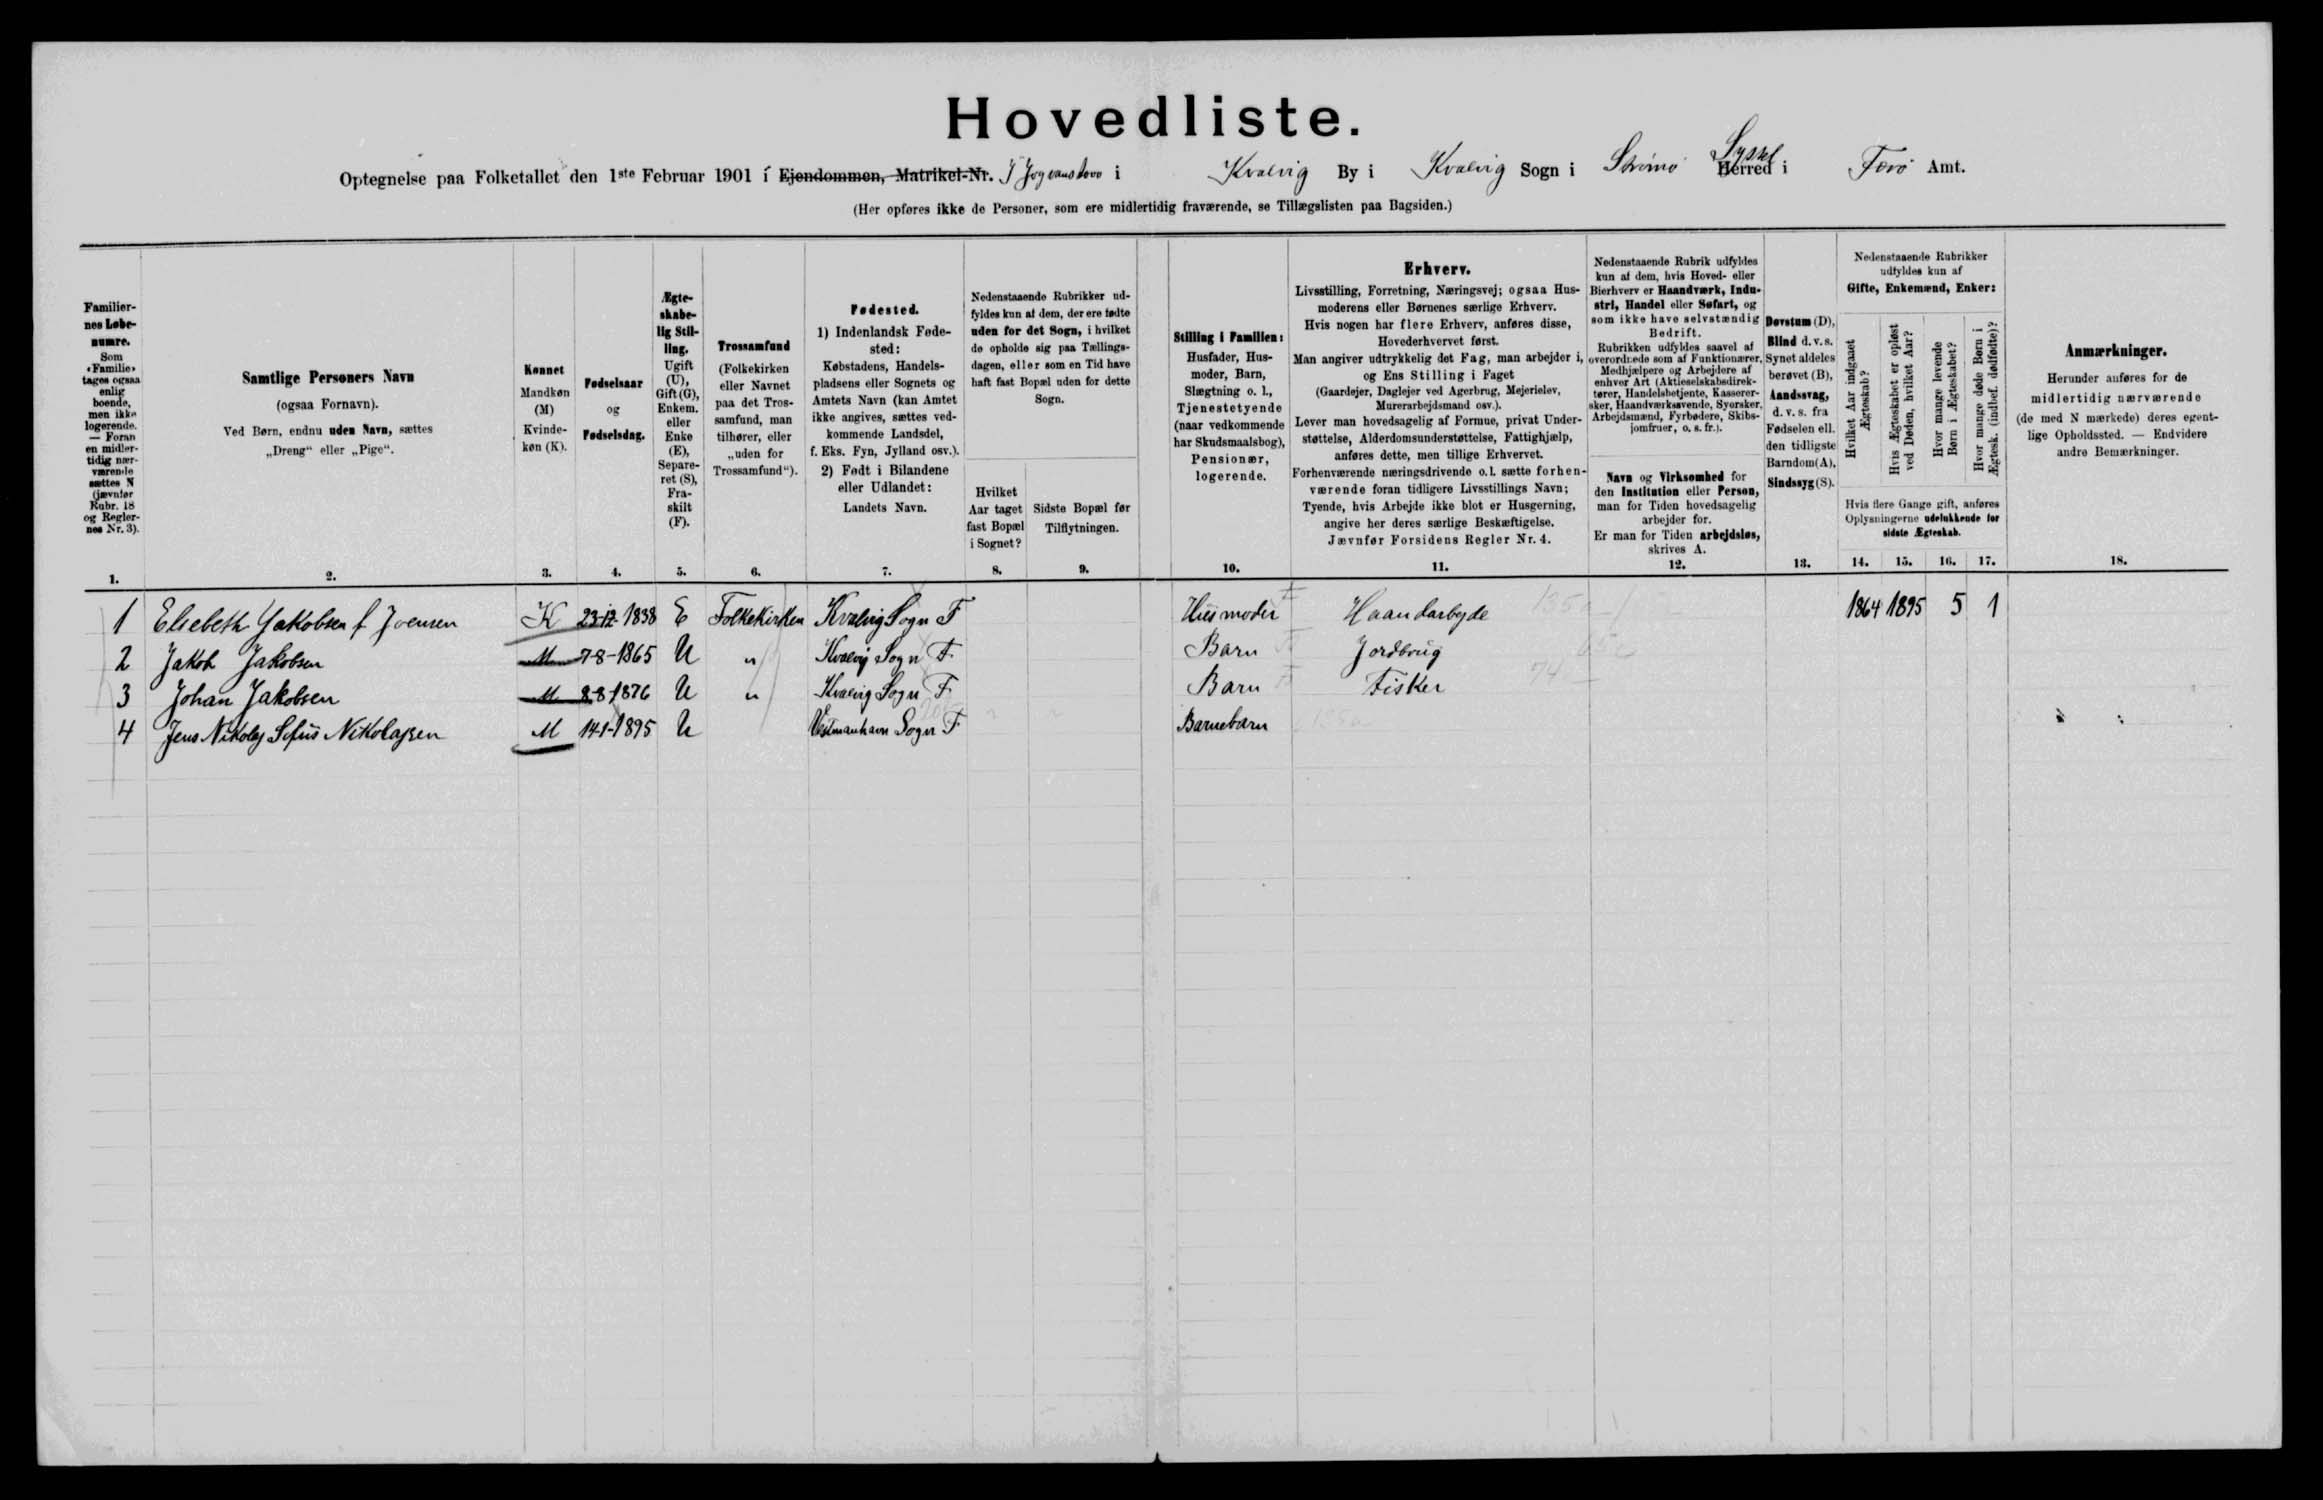 Hovedliste.
Optegnelse paa Folketallet den 1ste Februar 1901 i Ejendommen, Matrikel-Nr. i Kvalvig By i Kvalvig Sogn i Strömö Syssel Herred i Færö Amt.
(Her opføres ikke de Personer, som ere midlertidig fraværende, se Tillægslisten paa Bagsiden.)
Familiernes Løbenumre.
Som «Familie» tages ogsaa enlig boende, men ikke logerende. — Foran en midlertidig nærværende sættes N (jævnfør Rubr. 18 og Reglernes Nr. 3).
1.
Samtlige Personers Navn
(ogsaa Fornavn).
Ved Børn, endnu uden Navn, sættes
„Dreng“ eller „Pige“.
2.
Kønnet
Mandkøn (M)
Kvindekøn (K).
3.
Fødselsaar
og
Fødselsdag.
4.
Ægteskabelig Stilling.
Ugift (U), Gift (G), Enkem. eller Enke (E), Separeret (S), Fraskilt (F).
5.
Trossamfund
(Folkekirken eller Navnet paa det Trossamfund, man tilhører, eller „uden for Trossamfund“).
6.
Fødested.
1) Indenlandsk Fødested:
Købstadens, Handelspladsens eller Sognets og Amtets Navn (kan Amtet ikke angives, sættes vedkommende Landsdel, f. Eks. Fyn, Jylland osv.).
2) Født i Bilandene eller Udlandet:
Landets Navn.
7.
Nedenstaaende Rubrikker udfyldes kun af dem, der ere fødte uden for det Sogn, i hvilket de opholde sig paa Tællingsdagen, eller som en Tid have haft fast Bopæl uden for dette Sogn.
Hvilket Aar taget fast Bopæl i Sognet?
8.
Sidste Bopæl før Tilflytningen.
9.
Stilling i Familien:
Husfader, Husmoder, Barn, Slægtning o. l., Tjenestetyende (naar vedkommende har Skudsmaalsbog), Pensionær, logerende.
10.
Erhverv.
Livsstilling, Forretning, Næringsvej; ogsaa Husmoderens eller Børnenes særlige Erhverv.
Hvis nogen har flere Erhverv, anføres disse, Hovederhvervet først.
Man angiver udtrykkelig det Fag, man arbejder i, og Ens Stilling i Faget
(Gaardejer, Daglejer ved Agerbrug, Mejerielev, Murerarbejdsmand osv.).
Lever man hovedsagelig af Formue, privat Understøttelse, Alderdomsunderstøttelse, Fattighjælp, anføres dette, men tillige Erhvervet.
Forhenværende næringsdrivende o. l. sætte forhenværende foran tidligere Livsstillings Navn;
Tyende, hvis Arbejde ikke blot er Husgerning, angive her deres særlige Beskæftigelse.
Jævnfør Forsidens Regler Nr. 4.
11.
Nedenstaaende Rubrik udfyldes kun af dem, hvis Hoved- eller Bierhverv er Haandværk, Industri, Handel eller Søfart, og som ikke have selvstændig Bedrift.
Rubrikken udfyldes saavel af overordnede som af Funktionærer, Medhjælpere og Arbejdere af enhver Art (Aktieselskabsdirektører, Handelsbetjente, Kasserersker, Haandværkssvende, Syersker, Arbejdsmænd, Fyrbødere, Skibsjomfruer, o. s. fr.).
Navn og Virksomhed for den Institution eller Person, man for Tiden hovedsagelig arbejder for.
Er man for Tiden arbejdsløs, skrives A.
12.
Døvstum (D), Blind d. v. s. Synet aldeles berøvet (B), Aandssvag, d. v. s. fra Fødselen ell. den tidligste Barndom (A), Sindssyg (S).
13.
Nedenstaaende Rubrikker udfyldes kun af
Gifte, Enkemænd, Enker:
Hvilket Aar indgaaet Ægteskab?
Hvis Ægteskabet er opløst ved Døden, hvilket Aar?
Hvor mange levende Børn i Ægteskabet?
Hvor mange døde Børn i Ægtesk. (indbef. dødfødte)?
Hvis flere Gange gift, anføres Oplysningerne udelukkende for sidste Ægteskab.
14. 15. 16. 17.
Anmærkninger.
Herunder anføres for de midlertidig nærværende (de med N mærkede) deres egentlige Opholdssted. — Endvidere andre Bemærkninger.
18.
1 Elsebeth Jakobsen f Joensen K 23-12-1838 E Folkekirken Kvalvig Sogn F Husmoder Haandarbejde 1864 1895 5 1
2 Jakob Jakobsen M 7-8-1865 U " Kvalvig Sogn F. Barn Jordbrug
3 Johan Jakobsen M 8-8-1876 U " Kvalvig Sogn F. Barn Fisker
4 Jens Nikolaj Sofus Nikolajsen M 14-1-1895 U Vestmanhavn Sogn F Barnebarn